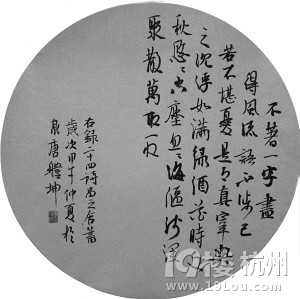 不著一字盡
得風流語不涉己
若不堪憂是有真宰與
之沉浮如滿綠酒花時反
秋悠悠空塵忽忽海漚淺深
聚散萬取一收
右錄二十四詩品之含蓄
歲次甲午仲夏於
唐坤
19楼杭州
19lou.com